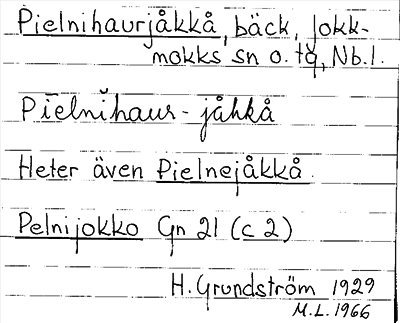 Pielnihaurjåkkå, bäck, Jokk-
mokks sn o. tg, Nb. l.
Pīelnĭhaur-jåhkå
Heter även Pielnejåkkå.
Pelnijokko Gn 21 (c 2)
H. Grundström 1929
M.L. 1966